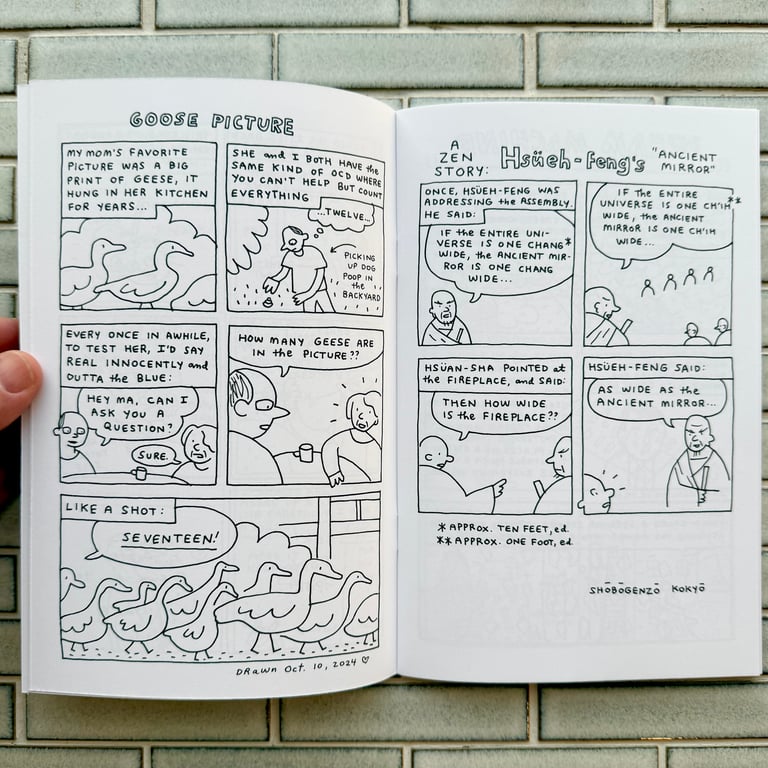 GOOSE PICTURE
MY MOM'S FAVORITE
PICTURE WAS A BIG
PRINT OF GEESE, IT
HUNG IN HER KITCHEN
FOR YEARS...
SHE and I BOTH HAVE the
SAME KIND OF OCD WHERE
YOU CAN'T HELP BUT COUNT
EVERYTHING
...TWELVE...
PICKING
UP DOG
POOP IN
the
BACKYARD
EVERY ONCE IN AWHILE,
TO TEST HER, I'D SAY
REAL INNOCENTLY and
OUTTA the BLUE:
HEY MA, CAN I
ASK YOU A
QUESTION?
SURE.
HOW MANY GEESE ARE
IN the PICTURE??
LIKE A SHOT:
SEVENTEEN!
DRAWN OCT. 10, 2024 ♡
A
ZEN
STORY:
Hsüeh-feng's
"ANCIENT
MIRROR"
ONCE, HSÜEH-FENG WAS
ADDRESSING the ASSEMBLY.
HE SAID:
IF the ENTIRE UNI-
VERSE IS ONE CHANG*
WIDE, the ANCIENT MIR-
ROR IS ONE CHANG
WIDE...
IF the ENTIRE
UNIVERSE IS ONE CH'IH**
WIDE, the ANCIENT
MIRROR IS ONE CH'IH
WIDE...
HSÜAN-SHA POINTED at
the FIREPLACE, and SAID:
THEN HOW WIDE
IS the FIREPLACE??
HSÜEH-FENG SAID:
AS WIDE AS the
ANCIENT MIRROR...
* APPROX. TEN FEET, ed.
** APPROX. ONE FOOT, ed.
SHŌBŌGENZŌ KOKYŌ